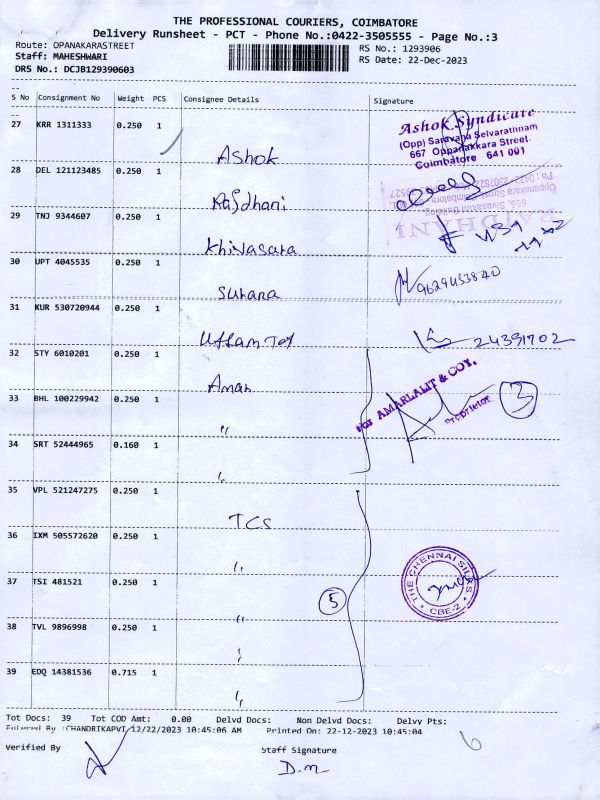 THE PROFESSIONAL COURIERS, COIMBATORE
Delivery Runsheet - PCT - Phone No.:0422-3505555 - Page No.:3
Route: OPANAKARASTREET
Staff: MAHESHWARI
DRS No.: DCJB129390603
RS No.: 1293906
RS Date: 22-Dec-2023
S No Consignment No Weight PCS Consignee Details Signature
27 KRR 1311333 0.250 1 Ashok
Ashok Syndicate
(Opp) Saravana Selvarathnam
667 Oppanakkara Street,
Coimbatore 641 001
28 DEL 121123485 0.250 1 Rajdhani
RAJDHANI
29 TNJ 9344607 0.250 1 Khivasara
30 UPT 4045535 0.250 1 Suhana 9629453840
31 KUR 530720944 0.250 1 Uttam Tex 24391702
32 STY 6010201 0.250 1 Aman
For AMARLALIT & COY.
Proprietor
3
33 BHL 100229942 0.250 1 "
34 SRT 52444965 0.160 1 "
35 VPL 521247275 0.250 1 TCS
36 IXM 505572620 0.250 1 "
THE CHENNAI SILKS
CBE-2
37 TSI 481521 0.250 1 "
5
38 TVL 9896998 0.250 1 "
39 EDQ 14381536 0.715 1 "
Tot Docs: 39 Tot COD Amt: 0.00 Delvd Docs: Non Delvd Docs: Delvy Pts:
Entered By :CHANDRIKAPVI 12/22/2023 10:45:06 AM Printed On: 22-12-2023 10:45:04
6
Verified By Staff Signature
D.m